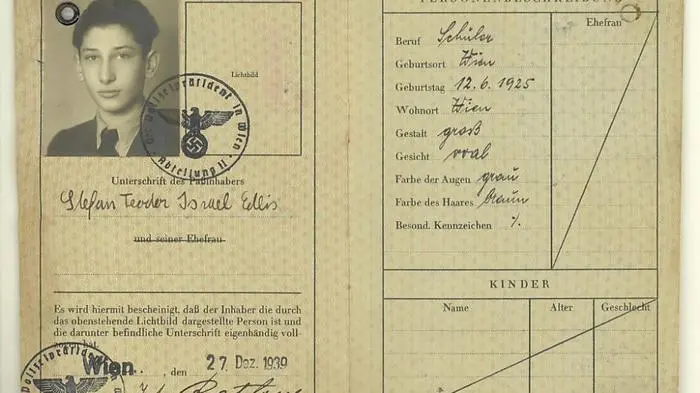 Lichtbild
Der Polizeipräsident in Wien
Abteilung II
Unterschrift des Paßinhabers
Stefan Teodor Israel Edlis
und seiner Ehefrau
Es wird hiermit bescheinigt, daß der Inhaber die durch
das obenstehende Lichtbild dargestellte Person ist und
die darunter befindliche Unterschrift eigenhändig voll-
hat.
Polizeipräsident
Wien, den 27. Dez. 1939
PERSONENBESCHREIBUNG
Ehefrau
Beruf Schüler
Geburtsort Wien
Geburtstag 12.6.1925
Wohnort Wien
Gestalt groß
Gesicht oval
Farbe der Augen grau
Farbe des Haares braun
Besond. Kennzeichen ∕.
KINDER
Name Alter Geschlecht